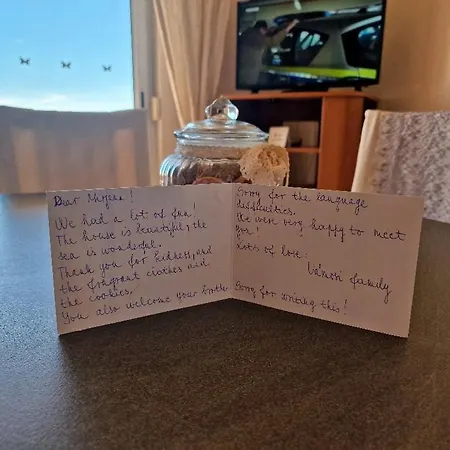 Dear Mirjana!
We had a lot of fun!
The house is beautiful, the
sea is wonderful.
Thank you for kidness, and
the fragrant clothes and
the cookies.
You also welcome your brother
Sorry for the language
difficulties.
We were very happy to meet
you!
Lots of love:
family
Sorry for writing this!